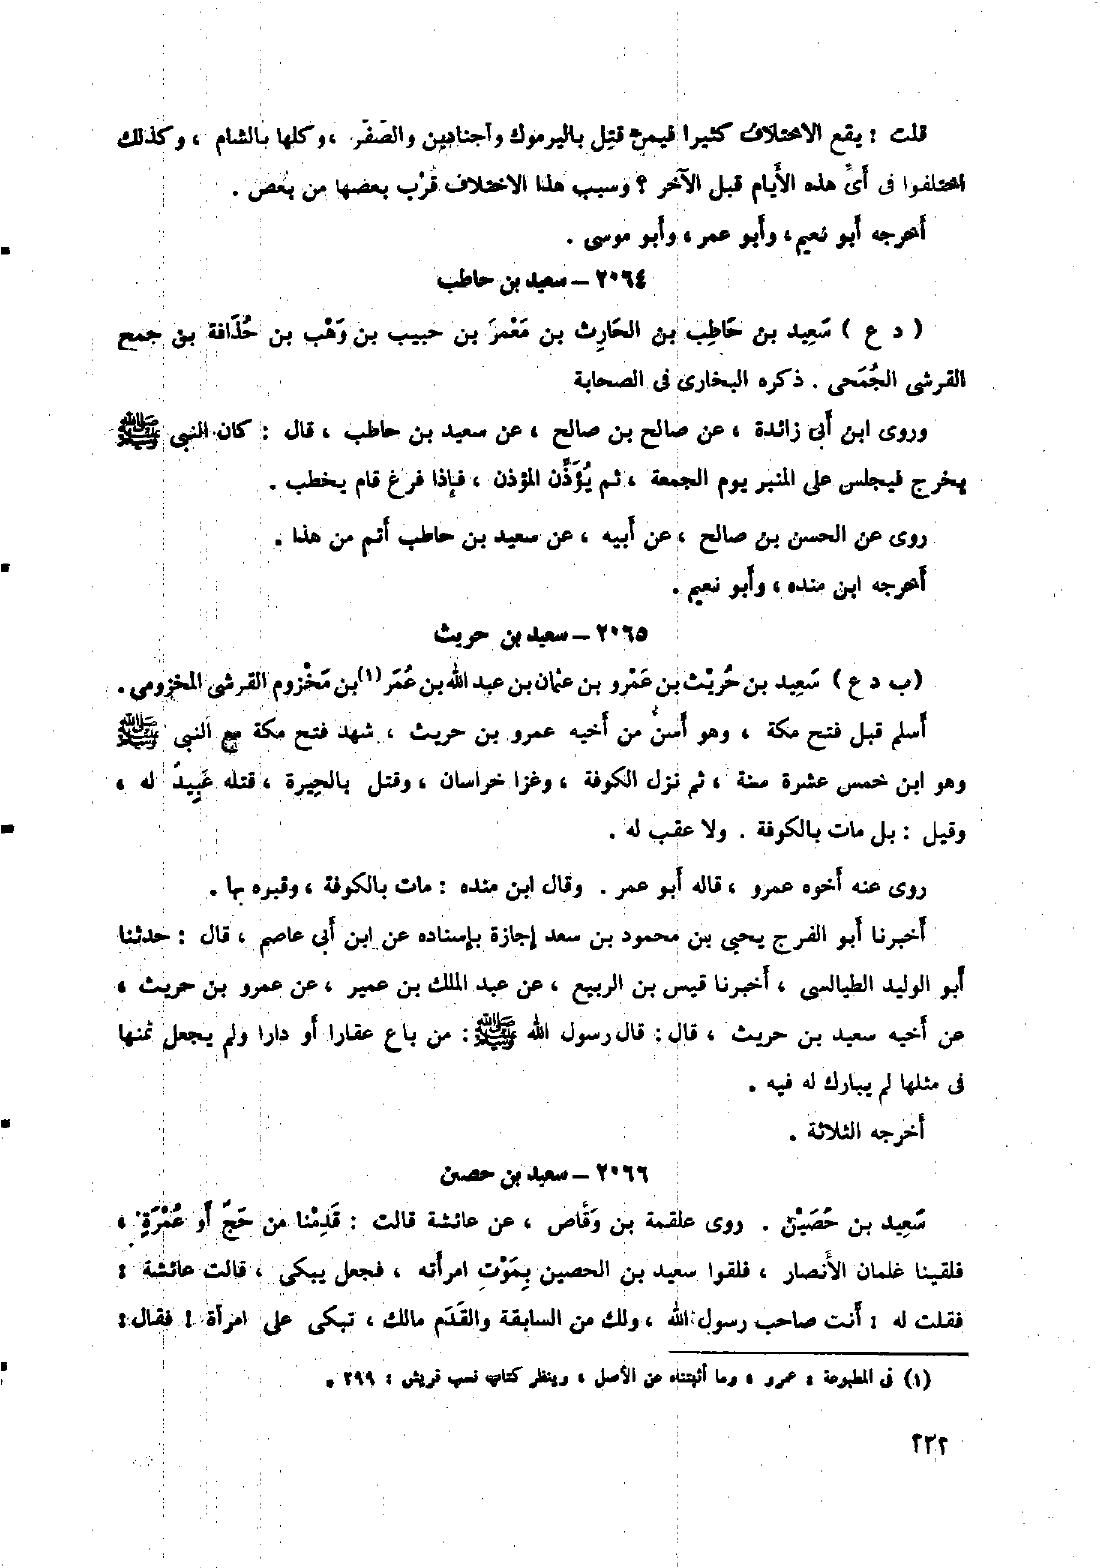 قلت : يقع الاختلاف كثيرا فيمن قتِل باليرموك وأجنادين والصُّفَّر ، وكلها بالشام ، وكذلك
اختلفوا فى أىِّ هذه الأيام قبل الآخر ؟ وسبب هذا الاختلاف قرْب بعضها من بعض .
أخرجه أبو نعيم ، وأبو عمر ، وأبو موسى .
٢٠٦٤ – سعيد بن حاطب
( د ع ) سَعِيد بن حَاطِب بن الحَارِث بن مَعْمرَ بن حبيب بن وَهْب بن حُذَافة بن جمح
القرشى الجُمَحى . ذكره البخارى فى الصحابة
وروى ابن أبى زائدة ، عن صالح بن صالح ، عن سعيد بن حاطب ، قال : كان النبى ﷺ
يخرج فيجلس على المنبر يوم الجمعة ، ثم يُؤَذِّن المؤذن ، فإذا فرغ قام يخطب .
روى عن الحسن بن صالح ، عن أبيه ، عن سعيد بن حاطب أتم من هذا .
أخرجه ابن منده ، وأبو نعيم .
٢٠٦٥ – سعيد بن حريث
(ب د ع) سَعِيد بن حُرَيْث بن عَمْرو بن عثمان بن عبد الله بن عُمَر (١) بن مَخْزوم القرشى المخزومى .
أسلم قبل فتح مكة ، وهو أسنّ من أخيه عمرو بن حريث ، شهد فتح مكة مع النبى ﷺ
وهو ابن خمس عشرة سنة ، ثم نزل الكوفة ، وغزا خراسان ، وقتل بالحِيرة ، قتله عَبِيدٌ له ،
وقيل : بل مات بالكوفة . ولا عقب له .
روى عنه أخوه عمرو ، قاله أبو عمر . وقال ابن منده : مات بالكوفة ، وقبره بها .
أخبرنا أبو الفرج يحيى بن محمود بن سعد إجازة بإسناده عن ابن أبى عاصم ، قال : حدثنا
أبو الوليد الطيالسى ، أخبرنا قيس بن الربيع ، عن عبد الملك بن عمير ، عن عمرو بن حريث ،
عن أخيه سعيد بن حريث ، قال : قال رسول الله ﷺ : من باع عقارا أو دارا ولم يجعل ثمنها
فى مثلها لم يبارك له فيه .
أخرجه الثلاثة .
٢٠٦٦ – سعيد بن حصين
سَعِيد بن حُصَيْن . روى علقمة بن وَقَّاص ، عن عائشة قالت : قَدِمْنا من حَجٍّ أو عُمْرَةٍ ،
فلقينا غلمان الأنصار ، فلقوا سعيد بن الحصين بِمَوْتِ امرأته ، فجعل يبكى ، قالت عائشة :
فقلت له : أنت صاحب رسول الله ، ولك من السابقة والقَدَم مالك ، تبكى على امرأة ! فقال :
(١) فى المطبوعة : عمرو ، وما أثبتناه عن الأصل ، وينظر كتاب نسب قريش : ٢٩٩ .